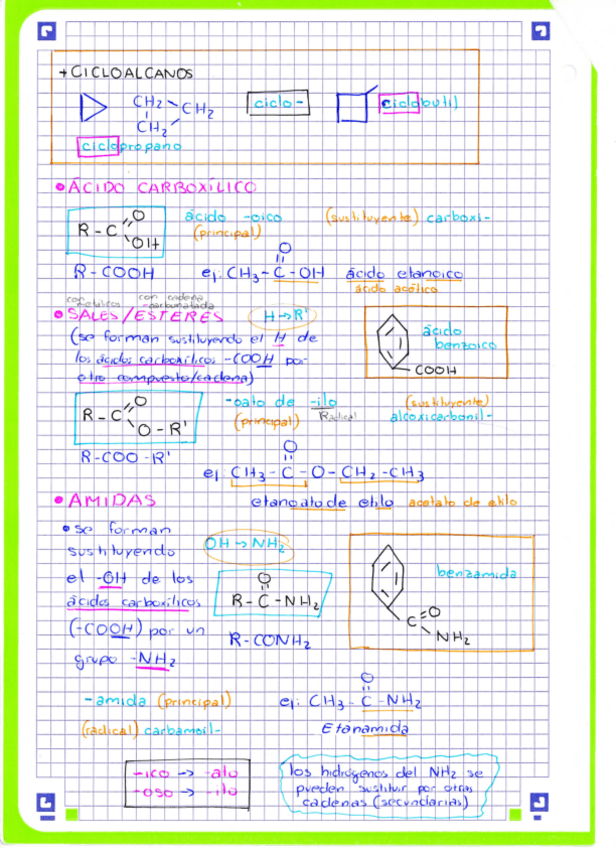 → CICLOALCANOS
CH2 CH2
CH2
ciclo-
ciclobutil
ciclopropano
• ÁCIDO CARBOXÍLICO
R - C O OH
ácido -oico (sustituyente) carboxi-
(principal)
R - COOH
O
ej: CH3 - C - OH ácido etanoico
ácido acético
con metálicos con cadena carbonatada
• SALES/ESTERES H → R'
(se forman sustituyendo el H de
los ácidos carboxílicos -COOH por
otro compuesto/cadena)
ácido
benzoico
COOH
R - C O
O - R'
-oato de -ilo (sustituyente)
(principal) Radical alcoxicarbonil-
R - COO - R'
O
ej: CH3 - C - O - CH2 - CH3
etanoato de etilo acetato de etilo
• AMIDAS
• se forman
sustituyendo
el -OH de los
ácidos carboxílicos
(-COOH) por un
grupo -NH2
OH → NH2
O
R - C - NH2
R - CONH2
benzamida
C = O
NH2
-amida (principal)
(radical) carbamoil-
O
ej: CH3 - C - NH2
Etanamida
-ico → -ato
-oso → -ito
los hidrógenos del NH2 se
pueden sustituir por otras
cadenas (secundarias)